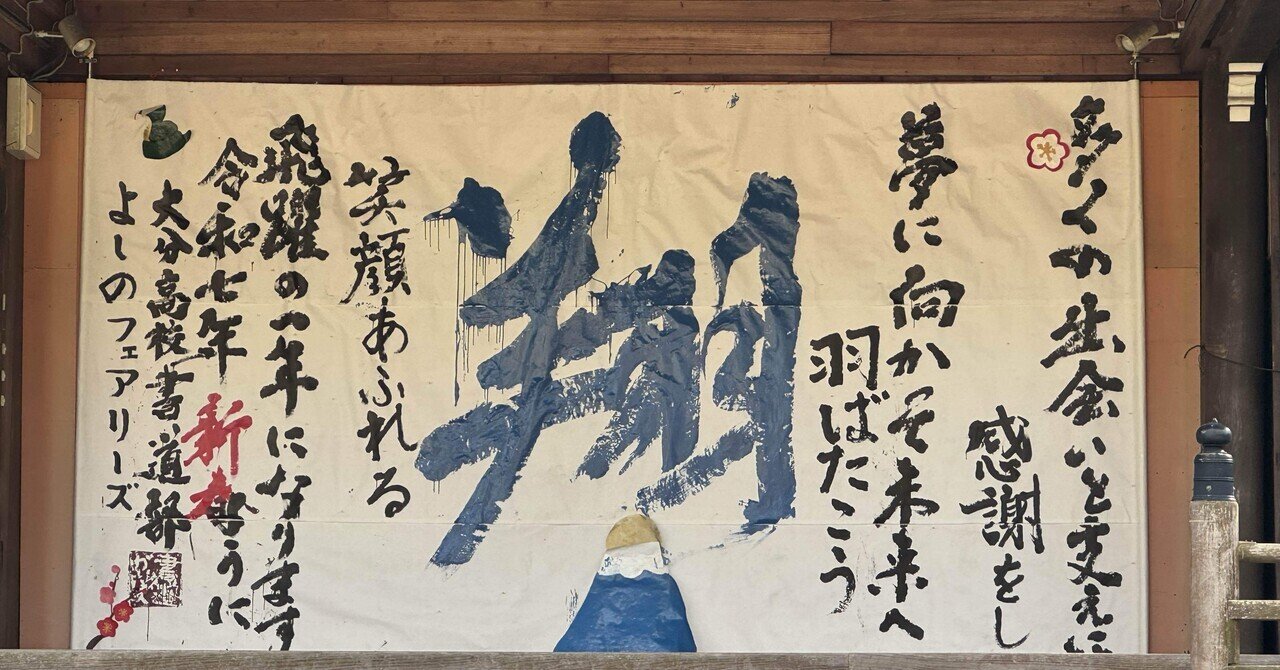 多くの出会いと支えに
感謝をし
夢に向かって未来へ
羽ばたこう
翔
笑顔あふれる
飛躍の一年になります
ように
令和七年
新春
大分高校書道部
よしのフェアリーズ